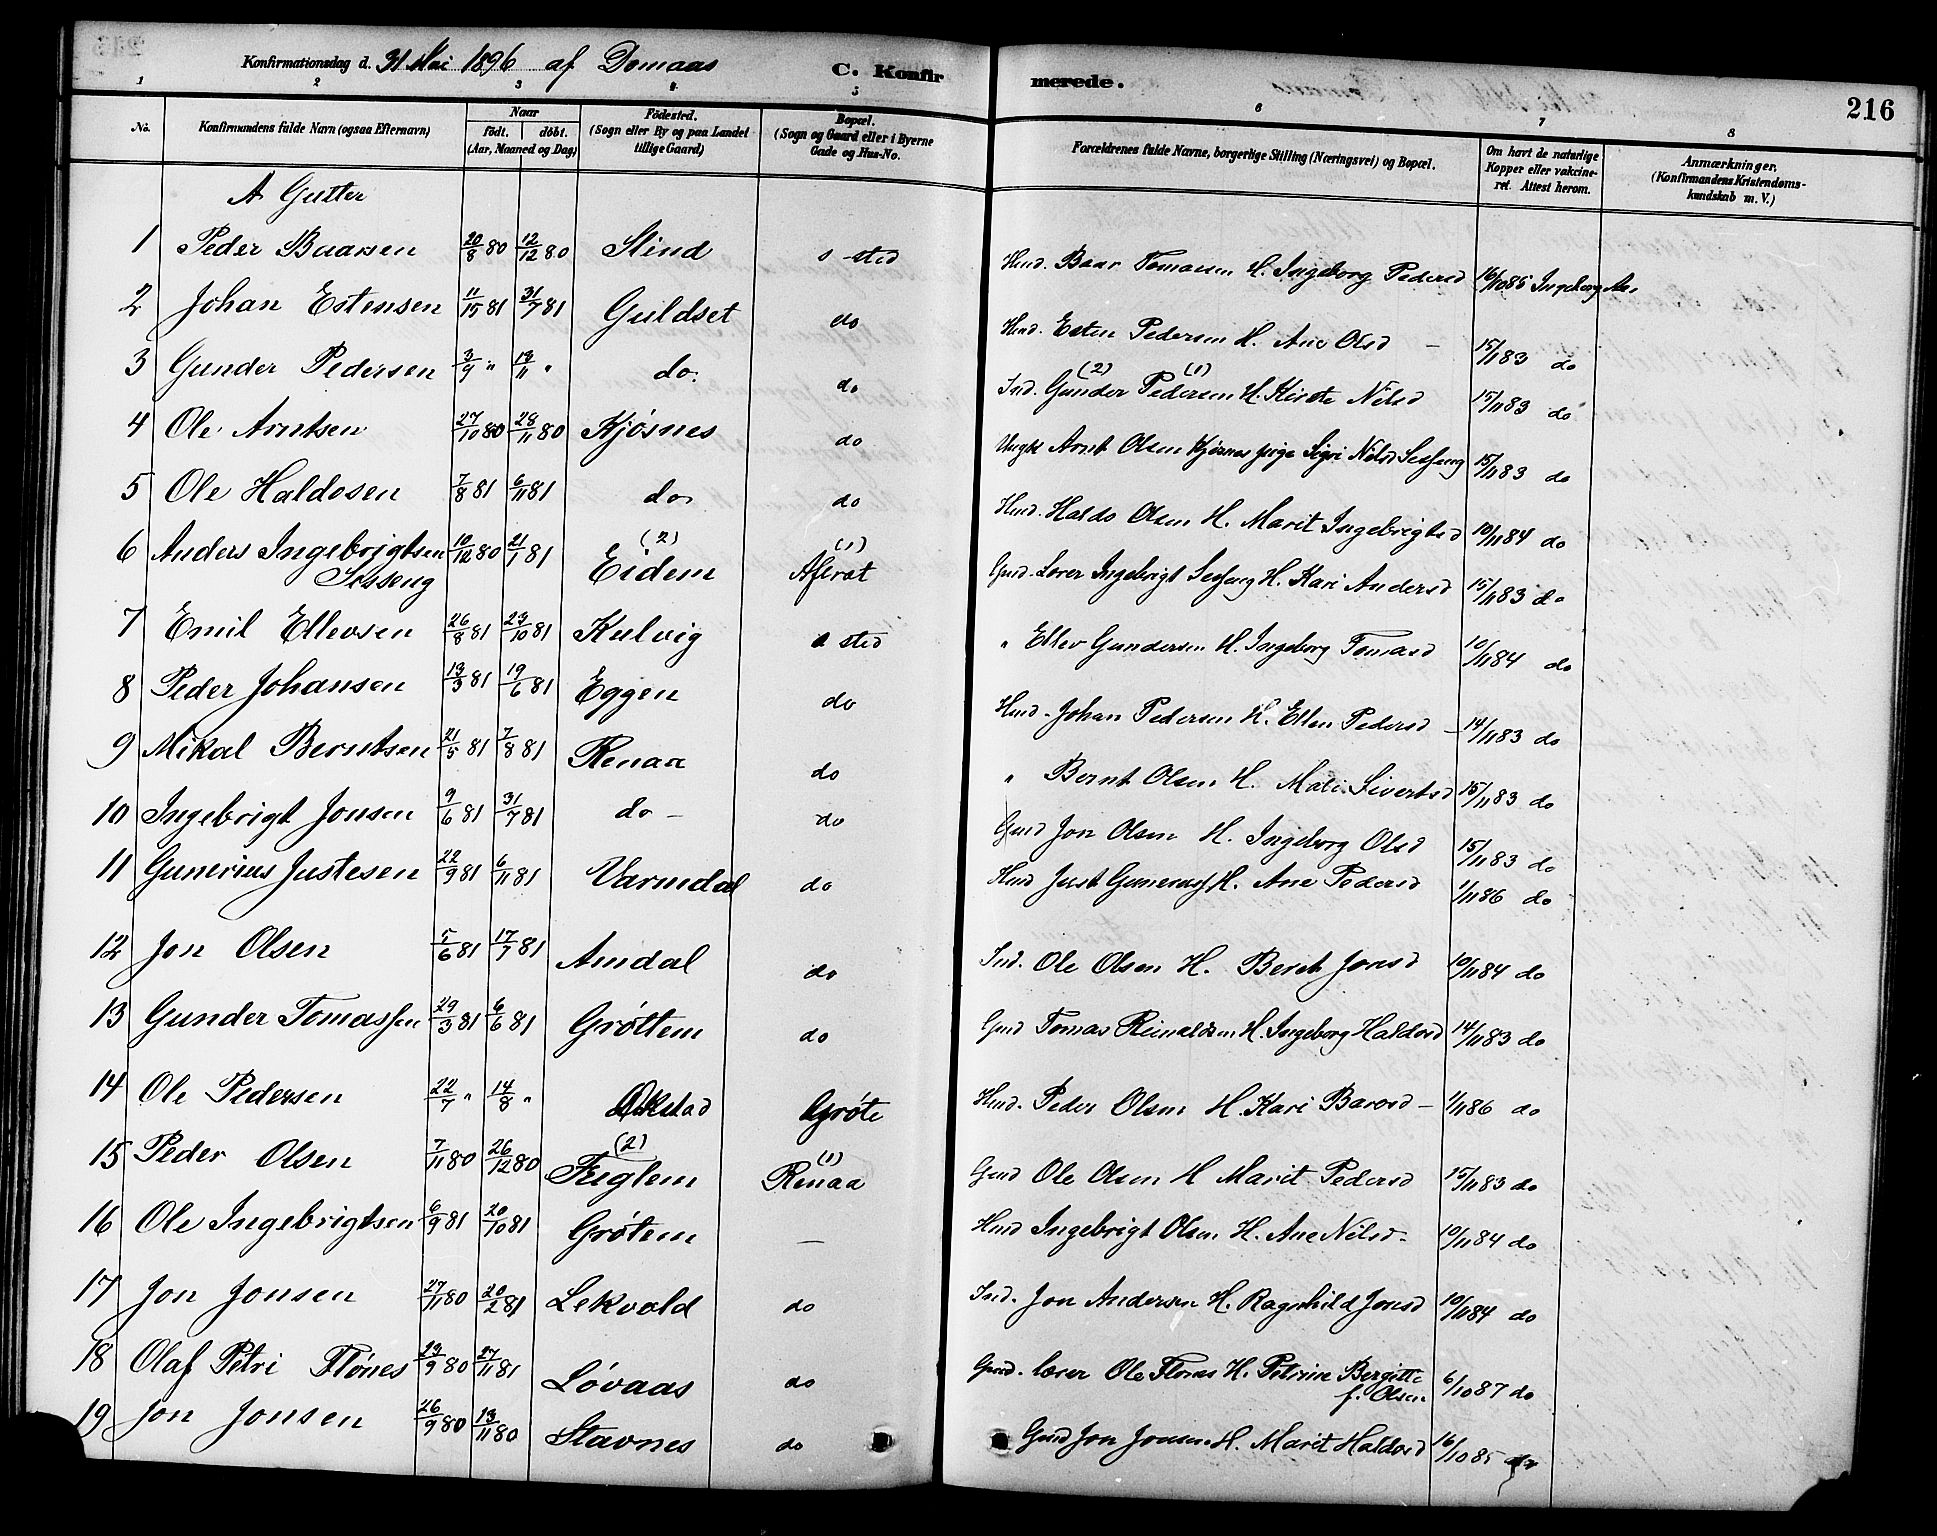 Konfirmationsdag d. 31 Mai 1896 af Domaas C. Konfirmerede. 216
1 2 3 4 5 6 7 8
No. Konfirmandens fulde Navn (ogsaa Efternavn) Naar födt. döbt. (Aar, Maaned og Dag) Födested. (Sogn eller By og paa Landet tillige Gaard) Bopæl. (Sogn og Gaard eller i Byerne Gade og Hus-No. Forældrenes fulde Navne, borgerlige Stilling (Næringsvei) og Bopæl. Om havt de naturlige Kopper eller vakcineret. Attest herom. Anmærkninger. (Konfirmandens Kristendomskundskab m. V.)
A Gutter
1 Peder Baarsen 20/8 80 12/12 80 Slind s sted Hmd. Baar Tomassen H. Ingeborg Pedersd 16/10 85 Ingeborg Aas
2 Johan Estensen 11/15 81 31/7 81 Guldset do Hmd. Esten Pedersen H. Ane Olsd – 15/11 83 do
3 Gunder Pedersen 3/9 " 13/11 " do. do Ind. Gunder (2) Pedersen (1) H. Kirste Nilsd 15/11 83 do
4 Ole Arntsen 27/10 80 28/11 80 Kjøsnes do Ungk Arnt Olsen Kjøsnes pige Sigri Nilsd Sesseng 15/11 83 do
5 Ole Haldosen 7/8 81 6/11 81 do do Hmd. Haldo Olsen H. Marit Ingebrigtsd 10/11 84 do
6 Anders Ingebrigtsen Sesseng 10/12 80 21/1 81 (2) Eidem (1) Aftret Gmd. Lærer Ingebrigt Sesseng H. Kari Andersd 15/11 83 do
7 Emil Ellevsen 26/8 81 23/10 81 Kulvig s sted " Ellev Gundersen H. Ingeborg Tomasd 10/11 84 do
8 Peder Johansen 13/3 81 19/6 81 Eggen do Hmd. Johan Pedersen H. Ellen Pedersd – 14/11 83 do
9 Mikal Berntsen 21/5 81 7/8 81 Renaa do " Bernt Olsen H. Mali Sivertsd 15/11 83 do
10 Ingebrigt Jonsen 9/6 81 31/7 81 do – do Gmd Jon Olsen H. Ingeborg Olsd 15/11 83 do
11 Gunerius Justesen 22/9 81 6/11 81 Varmdal do Hmd Just Guneriusf H. Ane Pedersd 1/11 86 do
12 Jon Olsen 5/6 81 17/7 81 Amdal do Ind. Ole Olsen H. Beret Jonsd 10/11 84 do
13 Gunder Tomassen 29/3 81 6/6 81 Grøttem do Gmd Tomas Reinaldsen H. Ingeborg Haldosd 14/11 83 do
14 Ole Pedersen 22/7 " 14/8 " Økstad Grøte Hmd. Peder Olsen H. Kari Baarsd – 1/11 86 do
15 Peder Olsen 7/11 80 26/12 80 (2) Fuglem (1) Renaa Gmd Ole Olsen H Marit Pedersd 15/11 83 do
16 Ole Ingebrigtsen 6/9 81 20/10 81 Grøtem — Hmd Ingebrigt Olsen H. Ane Nilsd. 10/11 84 do
17 Jon Jonsen 27/11 80 20/2 81 Lekvold do Ind. Jon Andersen H. Ragnhild Jonsd 10/11 84 do
18 Olaf Petri Flønes 23/9 80 27/11 81 Løvaas do Gmd. lærer Ole Flønes H. Petrine Bergitte f. Olsen 6/10 87 do
19 Jon Jonsen 26/9 80 13/11 80 Stavnes do Gmd Jon Jonsen H. Marit Haldosd 16/10 85 do